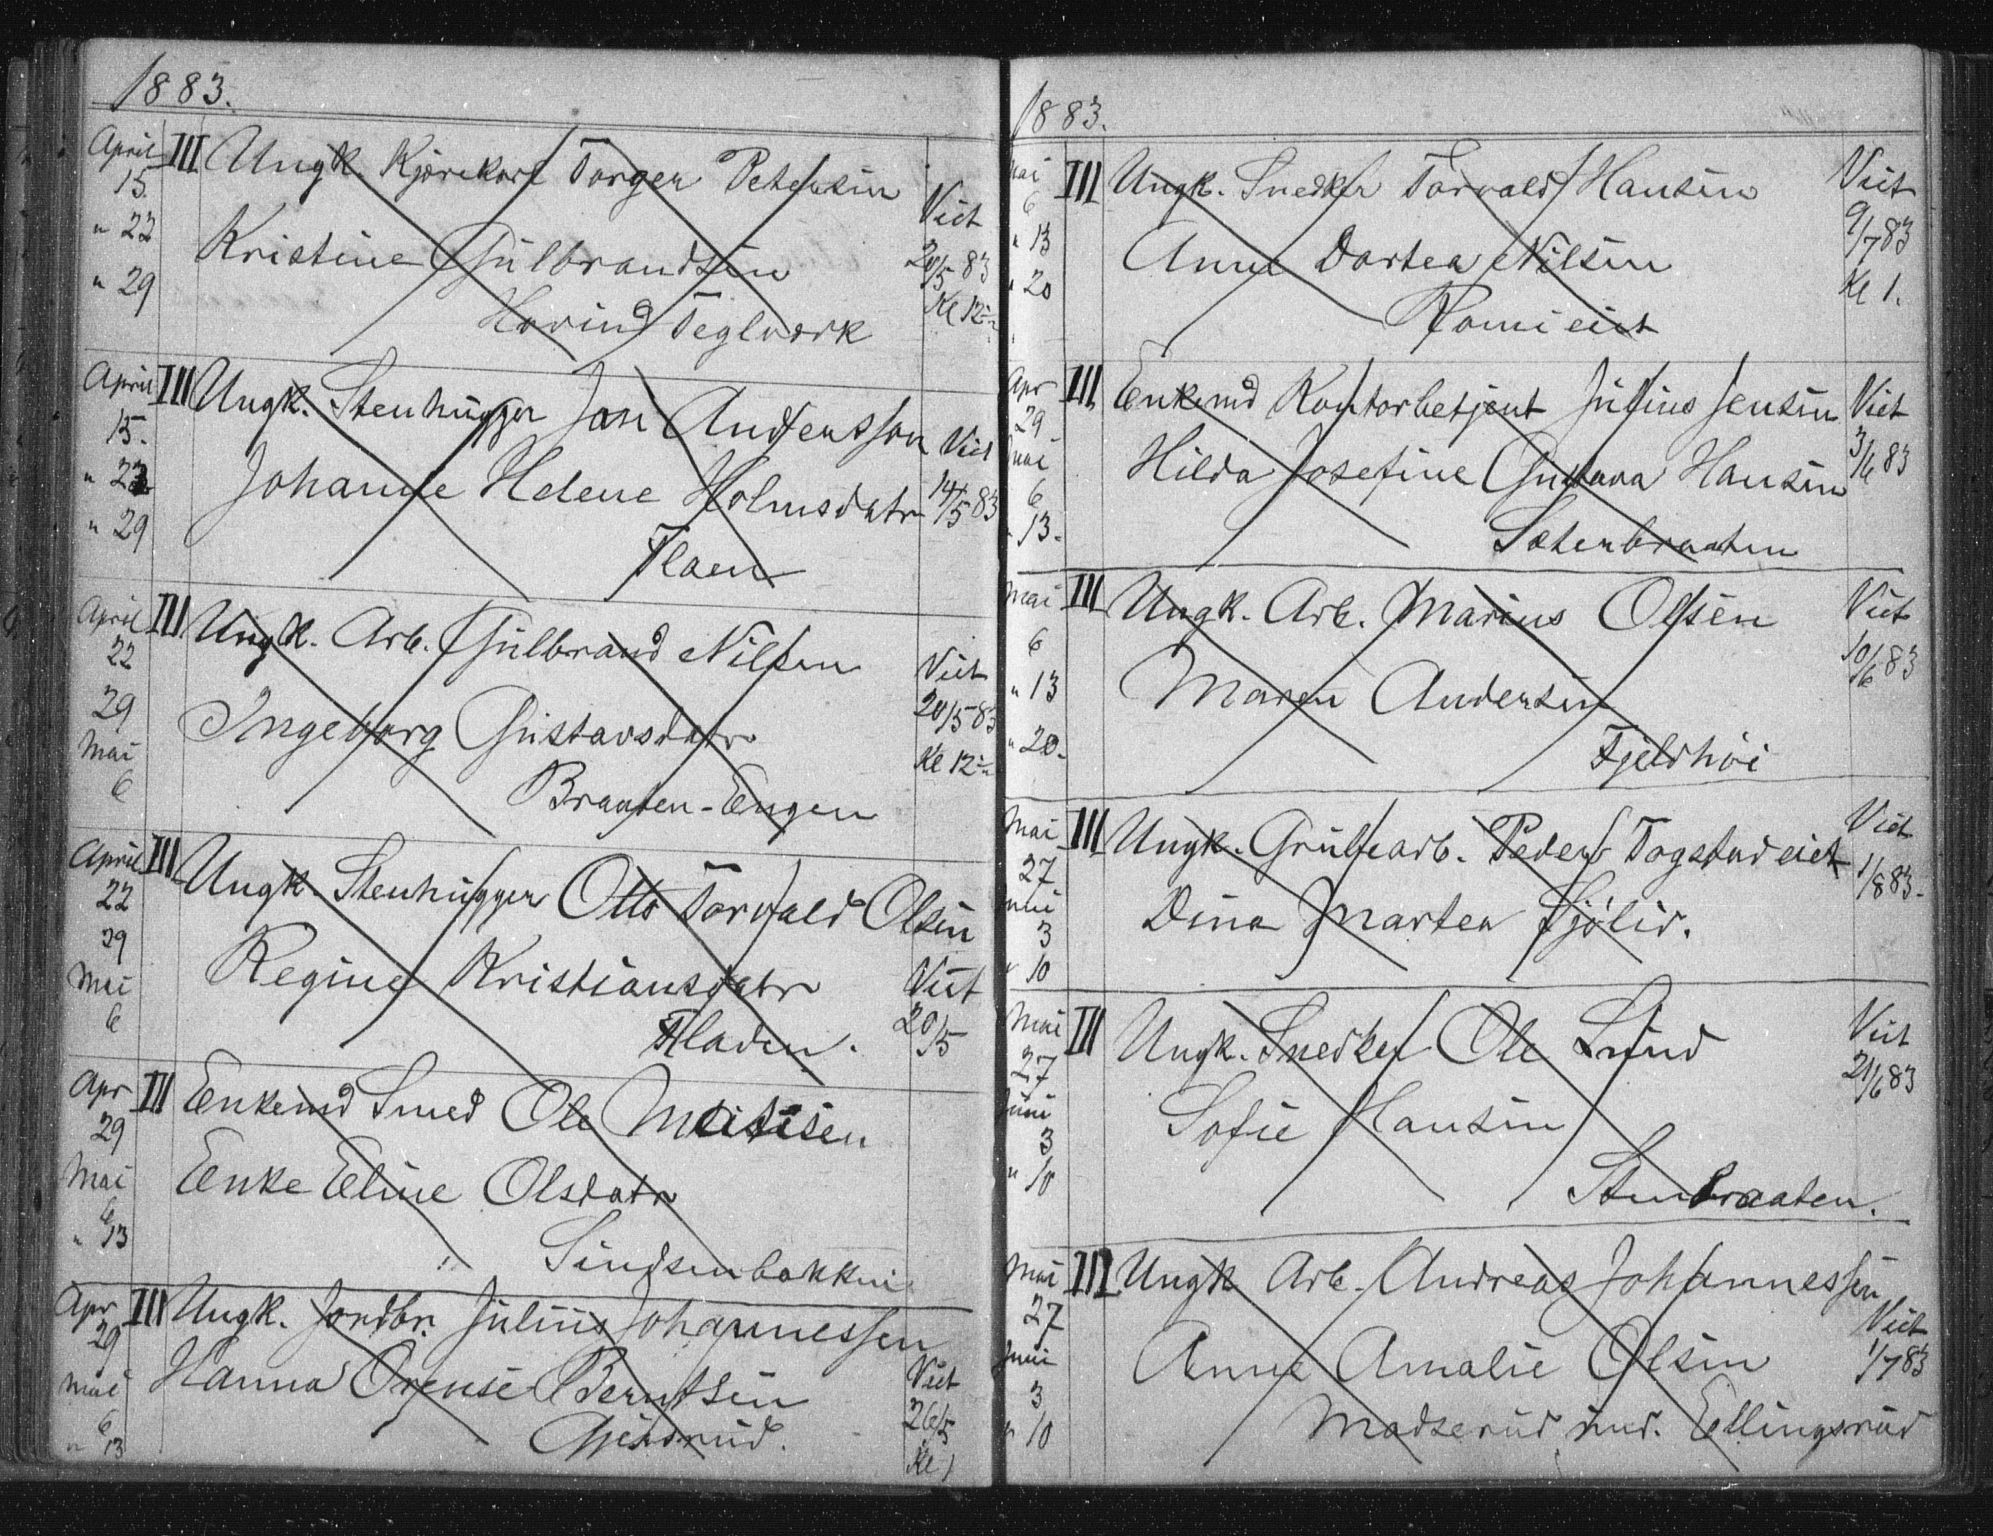 1883.
April III Ungk. Kjørekarl Torger Petersen
15.
" 22 Kristine Gulbrandsen Viet
" 29 Hovind Teglværk 20/5 83
Kl 12
April III Ungk. Stenhugger Jon Andersson
15.
" 22 Johanne Helene Holmsdatr Viet
" 29 Flaen 14/5 83
April III Ungk. Arb. Gulbrand Nilsen
22 Viet
29 Ingeborg Gustavsdatr 20/5 83
Mai Kl 12
6 Braaten-Engen
April III Ungk. Stenhugger Otto Torvald Olsen
22
29 Regine Kristiansdatr Viet
Mai 20/5
6 Fladen.
Apr III Enkemd Smed Ole Matisen
29
Mai Enke Eline Olsdatr
6
" 13 Sindsenbakken
Apr III Ungk. Jordbr. Julius Johannessen
29
Mai Hanna Orense Berntsen Viet
6 26/5
" 13 Gjetsrud. Kl 1
1883.
Mai III Ungk. Snedker Torvald Hansen Viet
6 9/7 83
" 13 Anne Dortea Nilsen Kl 1.
" 20 Romi eiet
Apr III Enkemd Kontorbetjent Julius Jensen Viet
29 3/6 83
Mai Hilda Josefine Gustava Hansen
6
" 13. Sæterbraaten
Mai III Ungk. Arb. Marius Olsen Viet
6 10/6 83
" 13 Maren Andersen
" 20. Fjeldhøi
Mai III Ungk. Grubearb. Peder Togstadeiet Viet
27 1/8 83.
Juni Dina Martea Sjølid.
3
" 10
Mai III Ungk. Snedker Ole Lund Viet
27 21/6 83
Juni Sofie Hansen
3
" 10 Stenbraaten.
Mai III Ungk Arb. Andreas Johannessen
27 Viet
Juni Anne Amalie Olsen 1/7 83
3
" 10 Madserud und. Ellingsrud